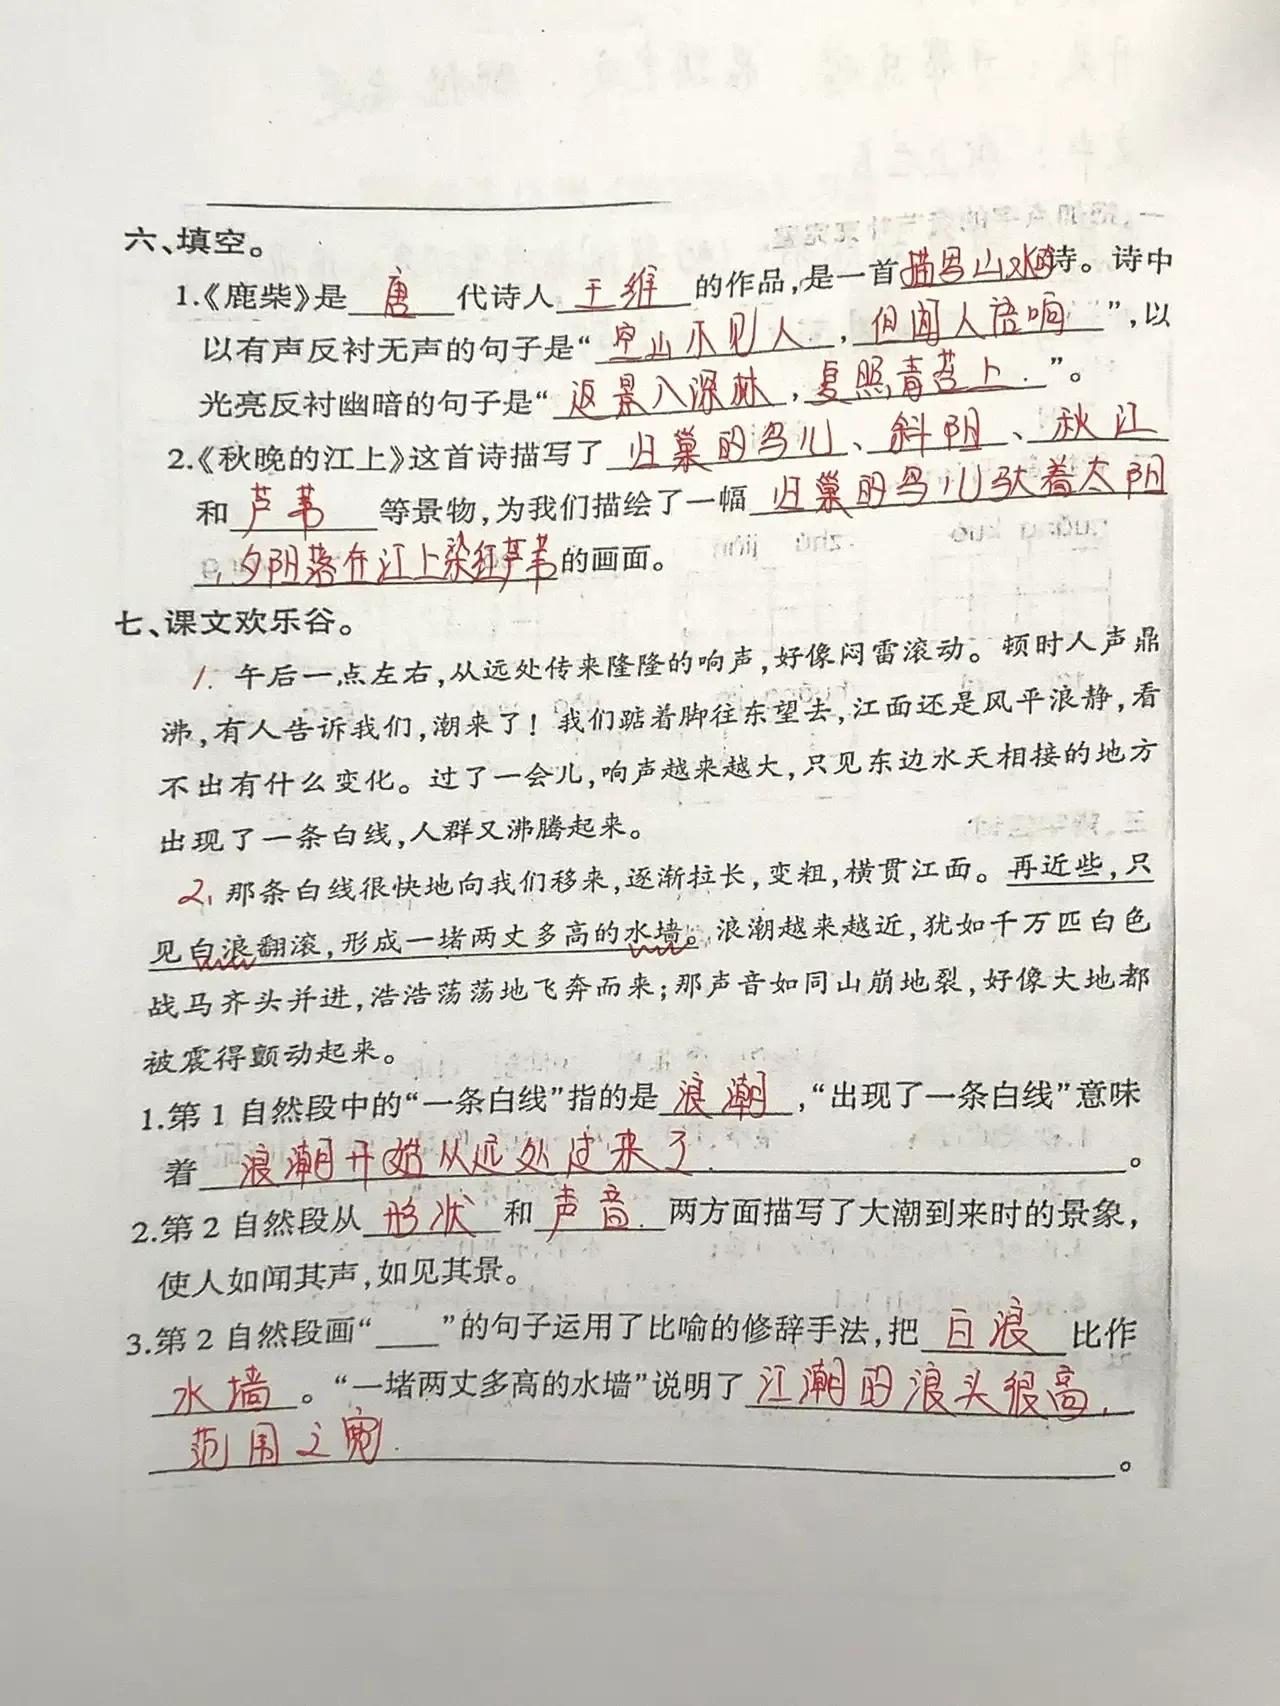 六、填空。
1.《鹿柴》是 唐 代诗人 王维 的作品,是一首描写山水的诗。诗中
以有声反衬无声的句子是“空山不见人,但闻人语响”,以
光亮反衬幽暗的句子是“返景入深林,复照青苔上.”。
2.《秋晚的江上》这首诗描写了 归巢的鸟儿、斜阳、秋江
和 芦苇 等景物,为我们描绘了一幅 归巢的鸟儿驮着太阳
,夕阳落在江上染红芦苇的画面。
七、课文欢乐谷。
1. 午后一点左右,从远处传来隆隆的响声,好像闷雷滚动。顿时人声鼎
沸,有人告诉我们,潮来了!我们踮着脚往东望去,江面还是风平浪静,看
不出有什么变化。过了一会儿,响声越来越大,只见东边水天相接的地方
出现了一条白线,人群又沸腾起来。
2. 那条白线很快地向我们移来,逐渐拉长,变粗,横贯江面。再近些,只
见白浪翻滚,形成一堵两丈多高的水墙。浪潮越来越近,犹如千万匹白色
战马齐头并进,浩浩荡荡地飞奔而来;那声音如同山崩地裂,好像大地都
被震得颤动起来。
1.第1自然段中的“一条白线”指的是 浪潮 ,“出现了一条白线”意味
着 浪潮开始从远处过来了. 。
2.第2自然段从 形状 和 声音. 两方面描写了大潮到来时的景象,
使人如闻其声,如见其景。
3.第2自然段画“___”的句子运用了比喻的修辞手法,把 白浪 比作
水墙 。“一堵两丈多高的水墙”说明了 江潮的浪头很高,
范围之宽. 。